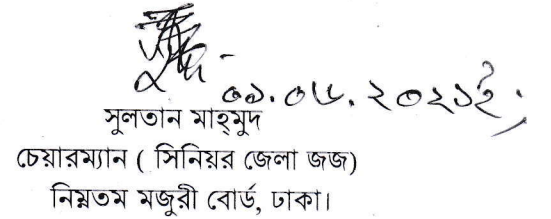 ০১.০৬.২০২১ইং
সুলতান মাহ্‌মুদ
চেয়ারম্যান ( সিনিয়র জেলা জজ)
নিম্নতম মজুরী বোর্ড, ঢাকা।